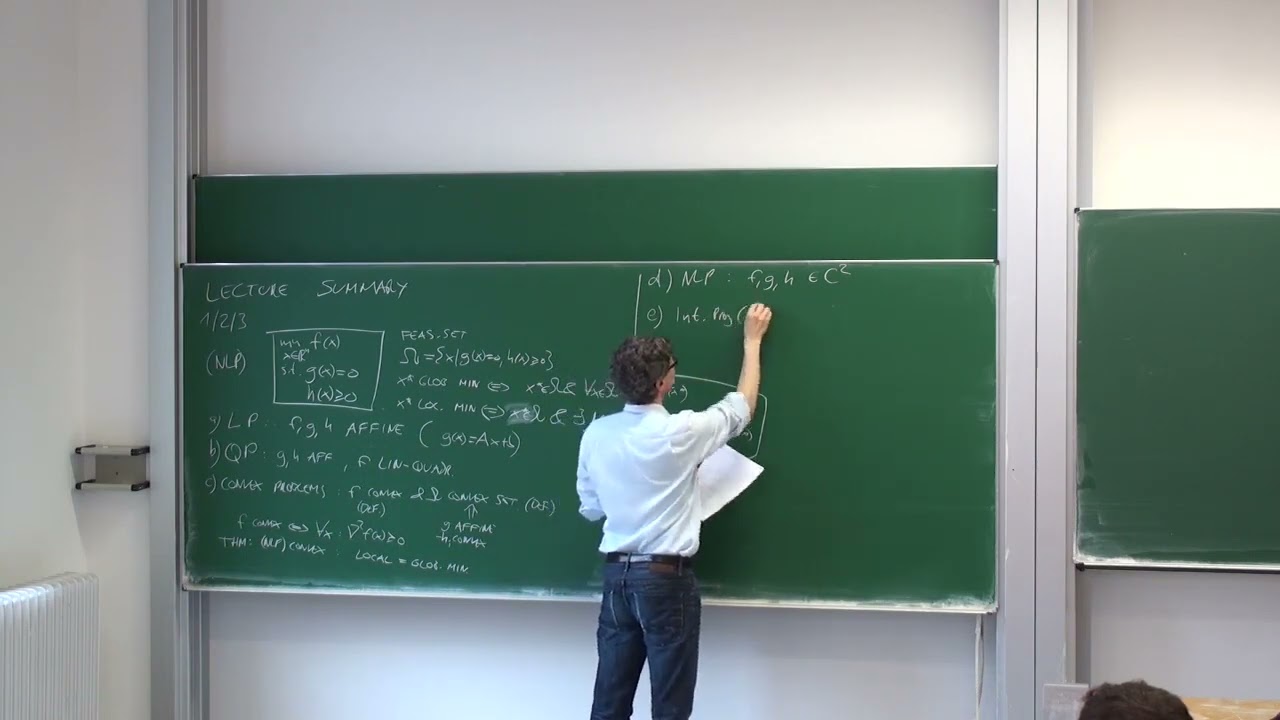 LECTURE SUMMARY
1/2/3
(NLP)
min f(x)
x∈ℝⁿ
s.t. g(x)=0
h(x)≥0
FEAS. SET
Ω={x|g(x)=0, h(x)≥0}
x* GLOB MIN ⇔ x*∈Ω & ∀x∈Ω
x* LOC. MIN ⇔ x*∈Ω & ∃
a) LP: f,g,h AFFINE (g(x)=Ax+b)
b) QP: g,h AFF, f LIN-QUADR.
c) CONVEX PROBLEMS: f CONVEX & Ω CONVEX SET (DEF)
(DEF)
⇑
g AFFINE
f CONVEX ⇔ ∀x: ∇²f(x)≥0
THM: (NLP) CONVEX: LOCAL = GLOB. MIN
d) NLP: f,g,h ∈ C²
e) Int. Prog (